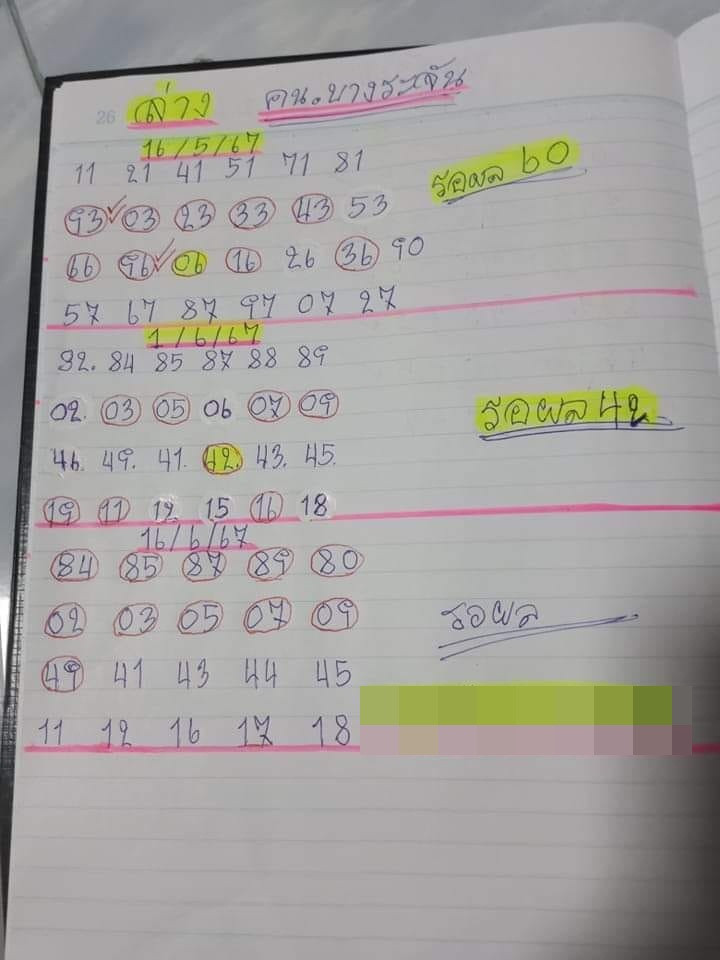 26 ล่าง คน.บางระจัน
16/5/67
11 21 41 51 71 81
รอผล 60
93 03 23 33 43 53
66 96 06 16 26 36 90
57 67 87 97 07 27
1/6/67
82. 84 85 87 88 89
02. 03 05 06 07 09
รอผล 42
46. 49. 41. 42. 43. 45.
19 11 12 15 16 18
16/6/67
84 85 87 89 80
02 03 05 07 09
รอผล
49 41 43 44 45
11 12 16 17 18